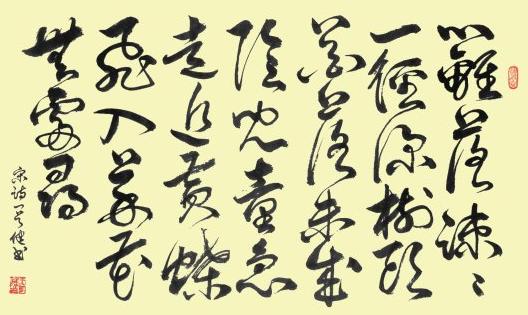 籬落疎々
一徑深樹頭
花落未成
陰兒童急
走追黄蝶
飛入菜花
無處尋
宋詩一首健書